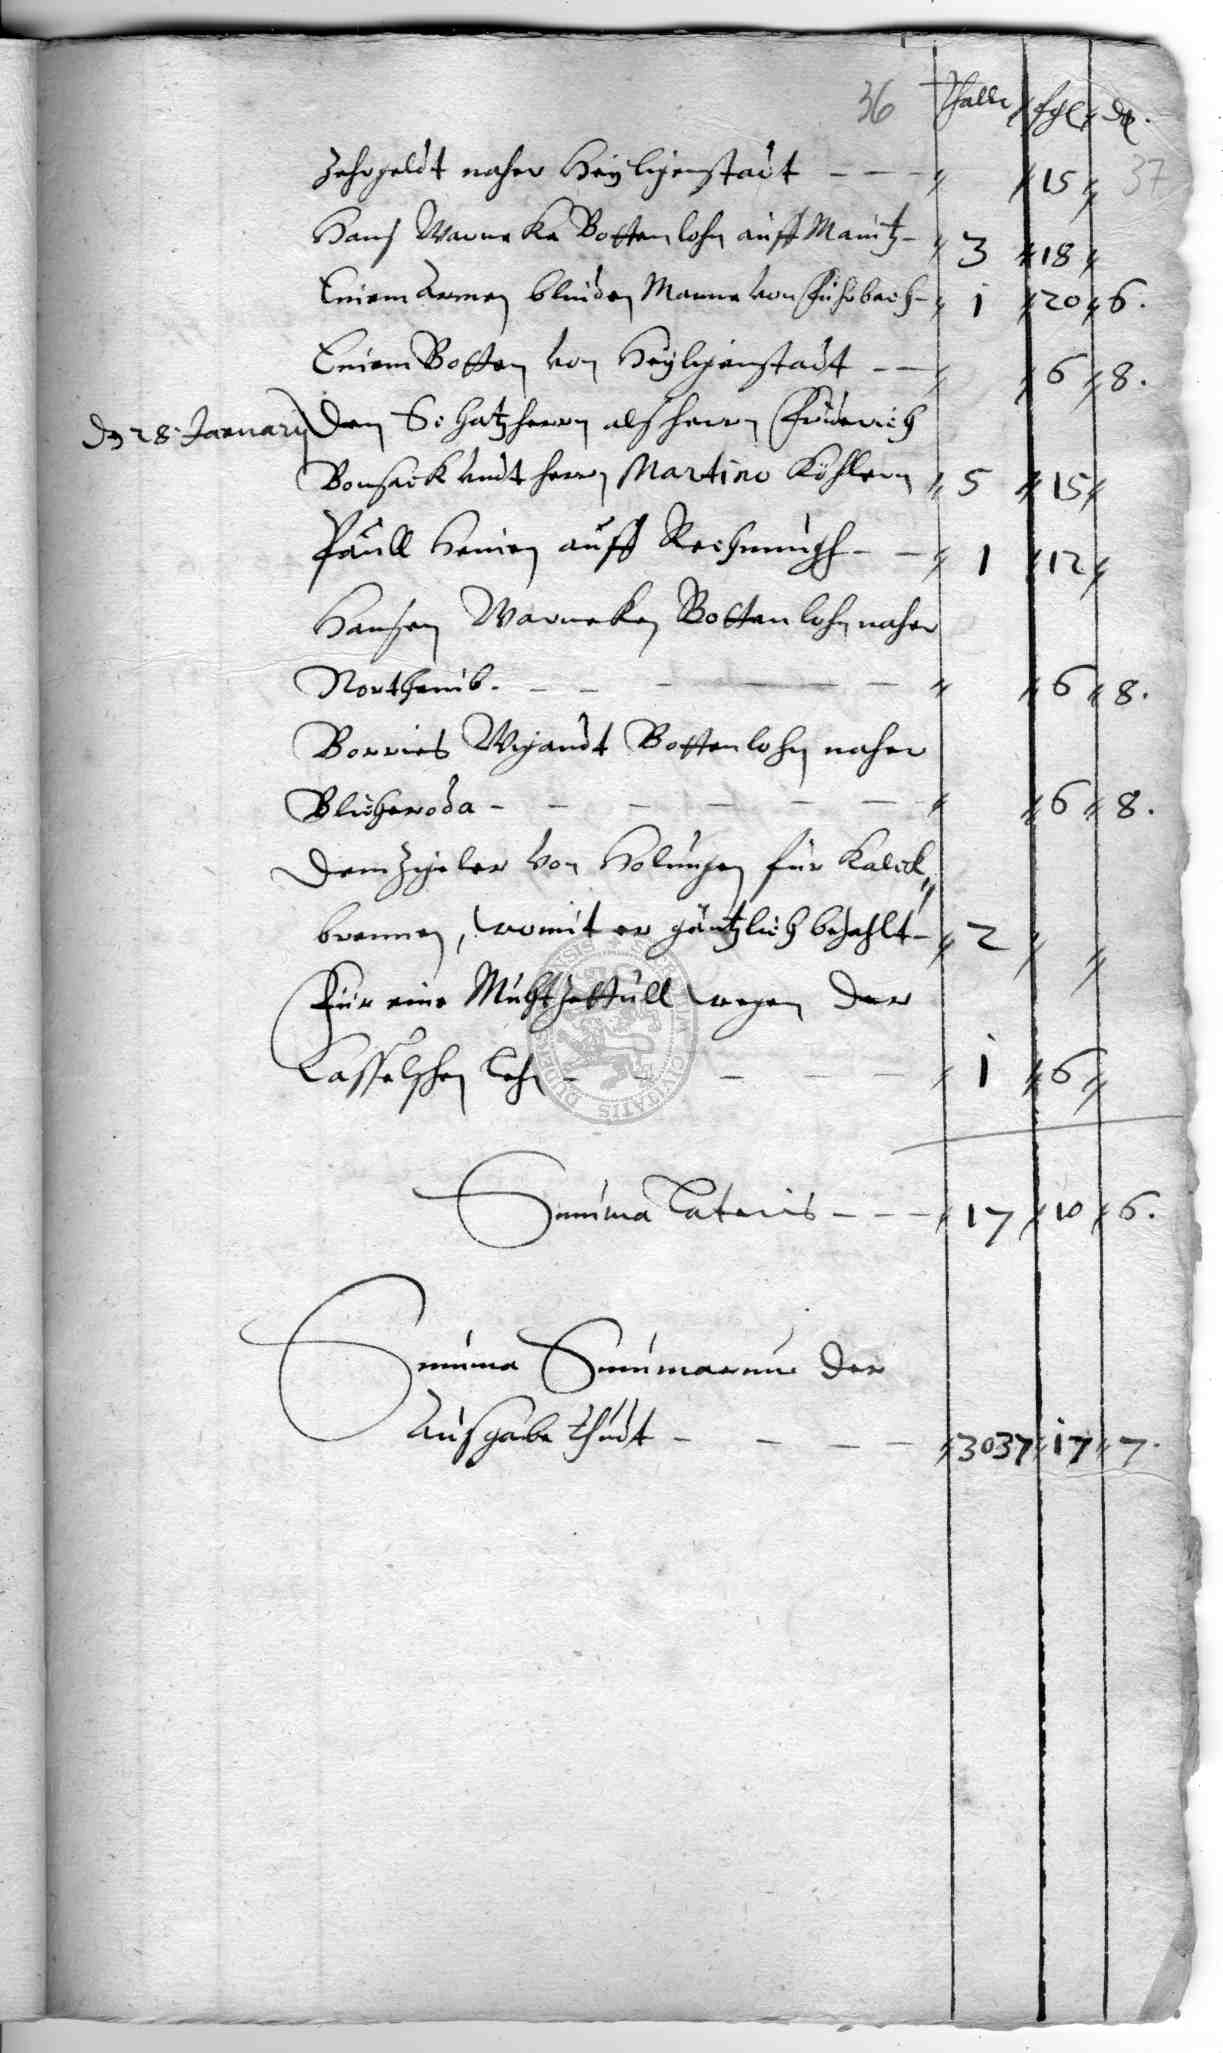 36 Thaller sgl. d.
37
Zehrgeldt naher Heyligenstadt - - - 15
Hans Warneke Bottenlohn auff Maintz - 3 18
Einem Armen blinden Manne von Fuhrbach - 1 20 6.
Einem Botten von Heyligenstadt - - 6 8.
Den 28. Januarij Den Schatzherrn als herrn Friderich
Bonsack undt herrn Martino Köhlern 5 15
Paull Heinen auff Rechnungh - - 1 12
Hansen Warneken Bottenlohn naher
Northeimb. - - - - - 6 8.
Borries Wigandt Bottenlohn naher
Blicheroda - - - - - - 6 8.
Dem Zigeler von Holungen für Kalck
brennen, womit er gäntzlich bezahlt - 2
Für eine Muhtzettull wegen der
Casselschen Lehn - - - - 1 6
Summa Lateris - - - 17 10 6.
Summa Summarum der
Ausgabe thudt - - - - 3037 17 7.
SIGILLUM CIVITATIS DUDERSTADENSIS